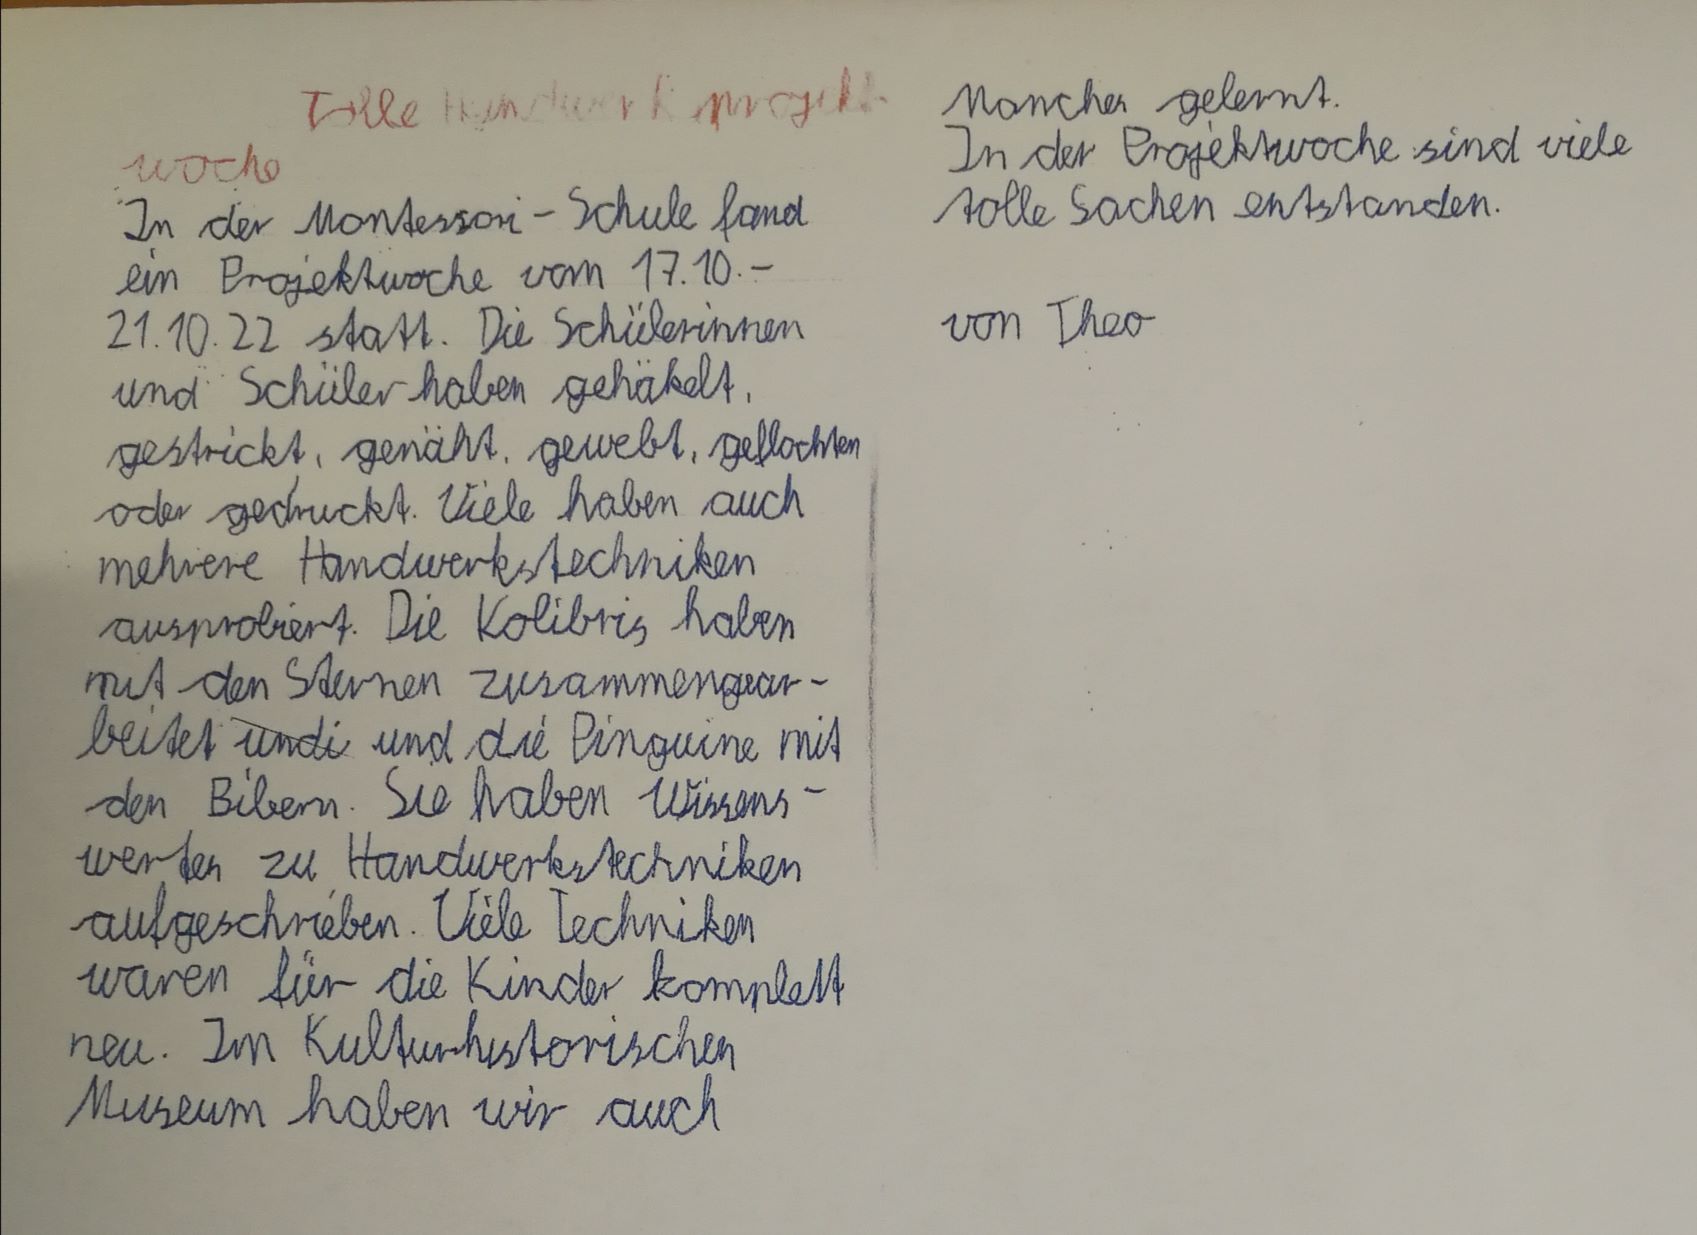 Tolle Handwerkprojekt-
woche
In der Montessori-Schule fand
ein Projektwoche vom 17.10.-
21.10.22 statt. Die Schülerinnen
und Schüler haben gehäkelt,
gestrickt, genäht, gewebt, geflochten
oder gedruckt. Viele haben auch
mehrere Handwerkstechniken
ausprobiert. Die Kolibris haben
mit den Sternen zusammengear-
beitet undi und die Pinguine mit
den Bibern. Sie haben Wissens-
wertes zu Handwerkstechniken
aufgeschrieben. Viele Techniken
waren für die Kinder komplett
neu. Im Kulturhistorischen
Museum haben wir auch
Manches gelernt.
In der Projektwoche sind viele
tolle Sachen entstanden.
von Theo